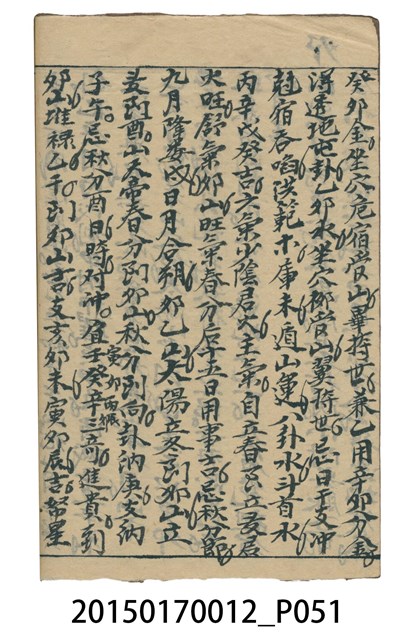 癸卯金坐穴危宿管山畢持世兼乙用辛卯分金
得透地屯卦乙卯水坐穴柳管山翼持世忌日干支冲
尅宿吞啗洪範木庫未遁山運八卦水斗首水
丙辛戊癸吉六氣少陰君火主氣自立春至立夏君
火旺舒氣卯山旺氣春分后十五日用事吉忌秋分節
九月降婁戌日月合朔卯乙山太陽立冬到卯山立
夏到酉山天帝春分到卯山秋分到向卦納庚亥納
子午忌秋分酉日時对冲宜壬癸辛三奇進貴到
寅卯兩
卯山堆祿乙干到卯山吉支亥卯未寅卯辰吉帑星
20150170012_P051